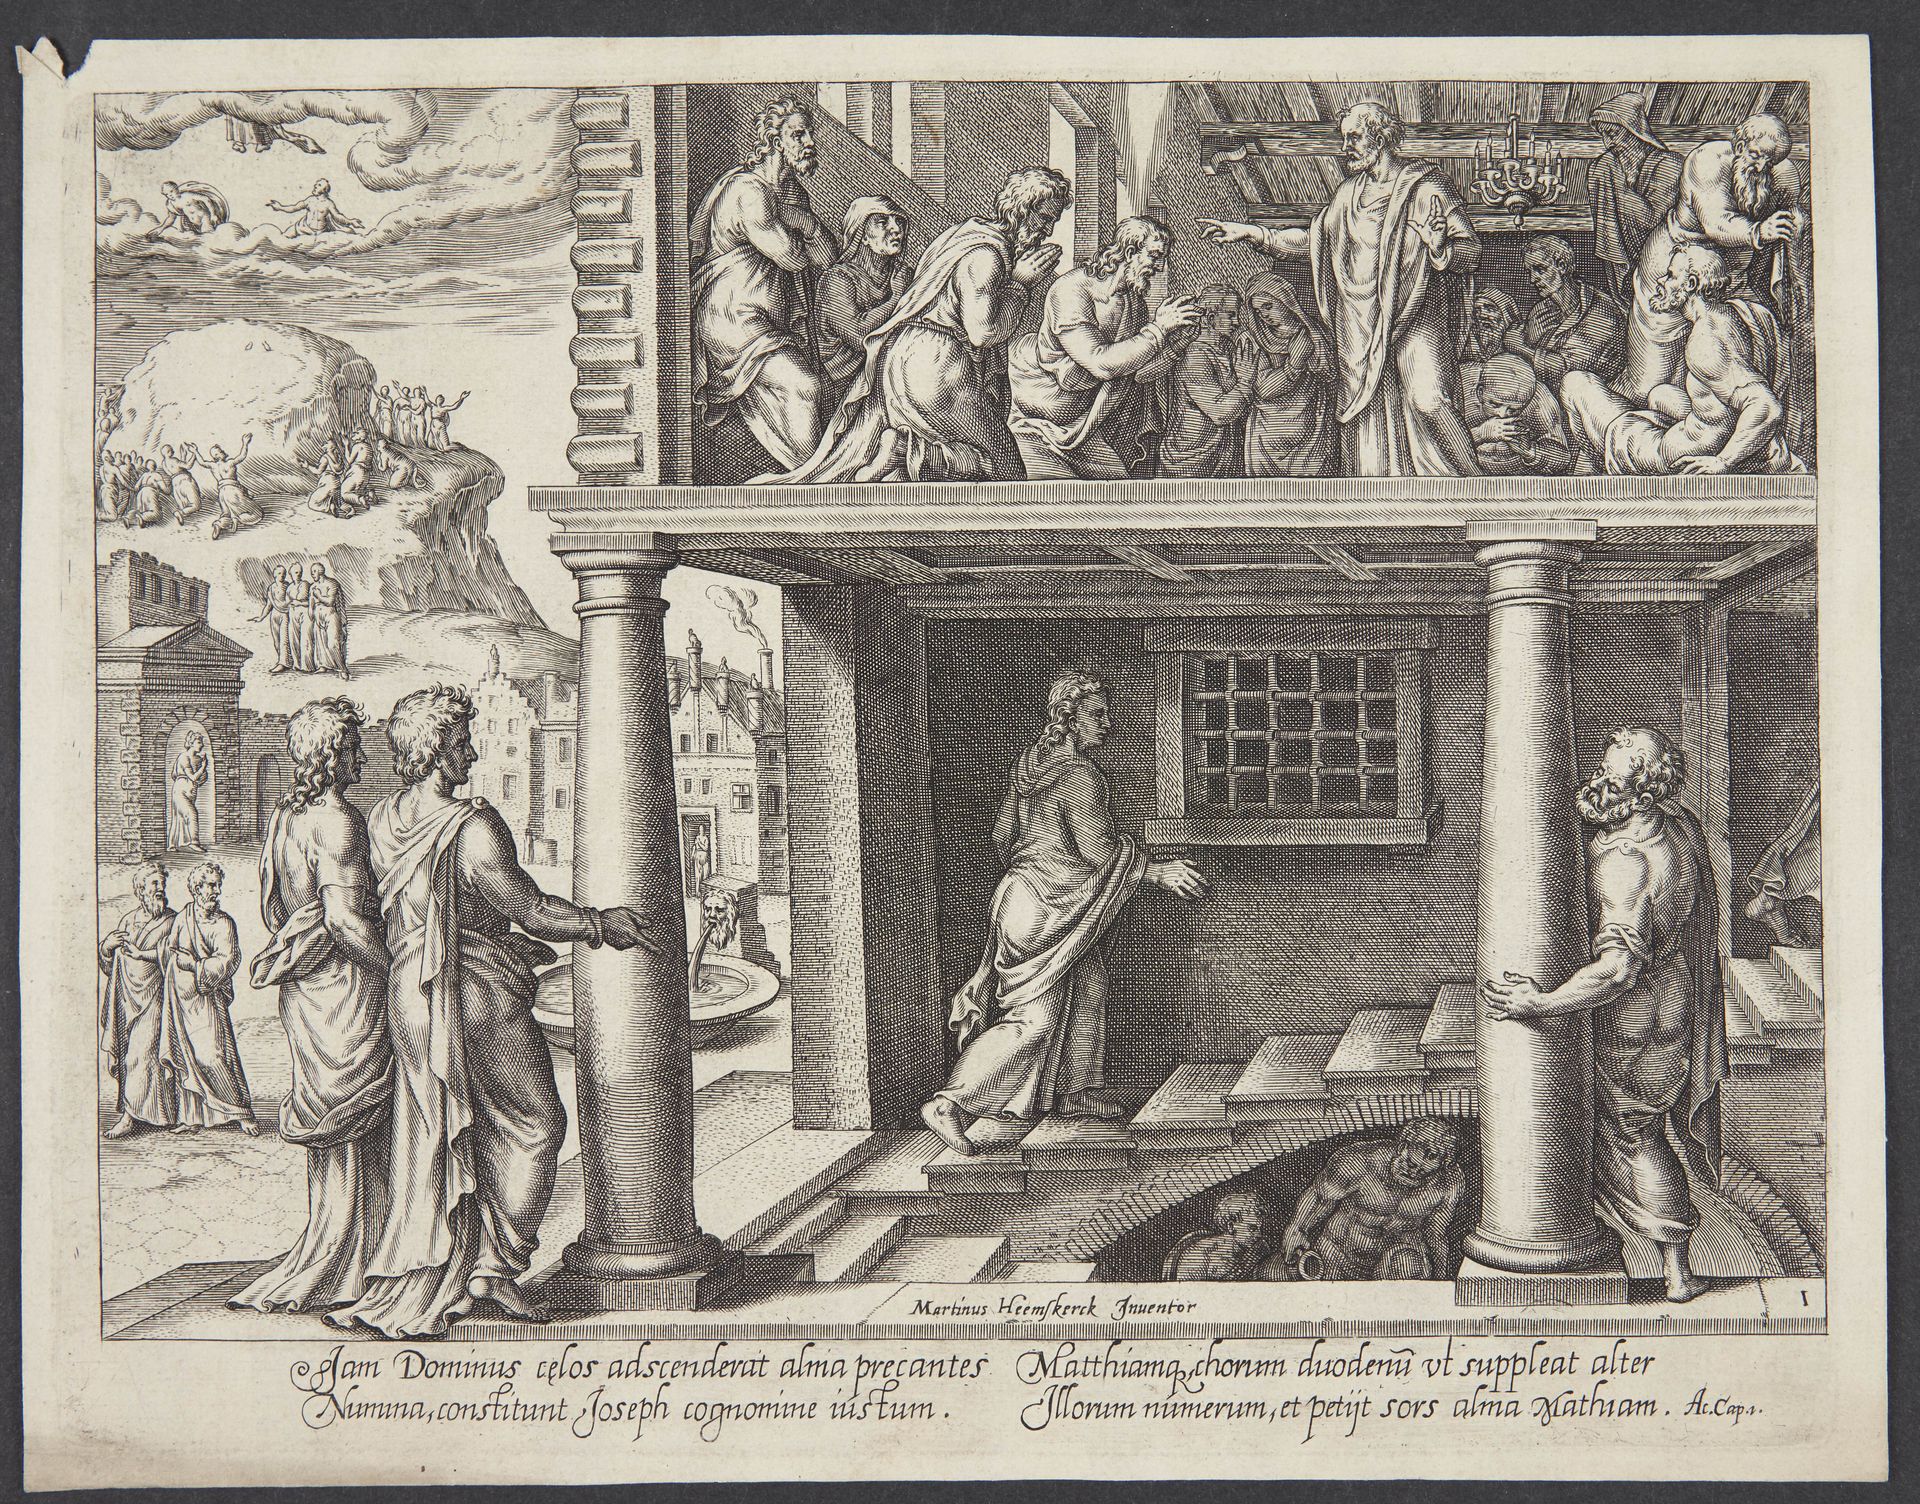 Martinus Heemskerck Inuentor
1
Jam Dominus cęlos adscenderat alma precantes
Numina, constitunt Joseph cognomine iustum.
Matthiamq, chorum duodenū vt suppleat alter
Illorum numerum, et petijt sors alma Mathiam. Ac. Cap. 1.